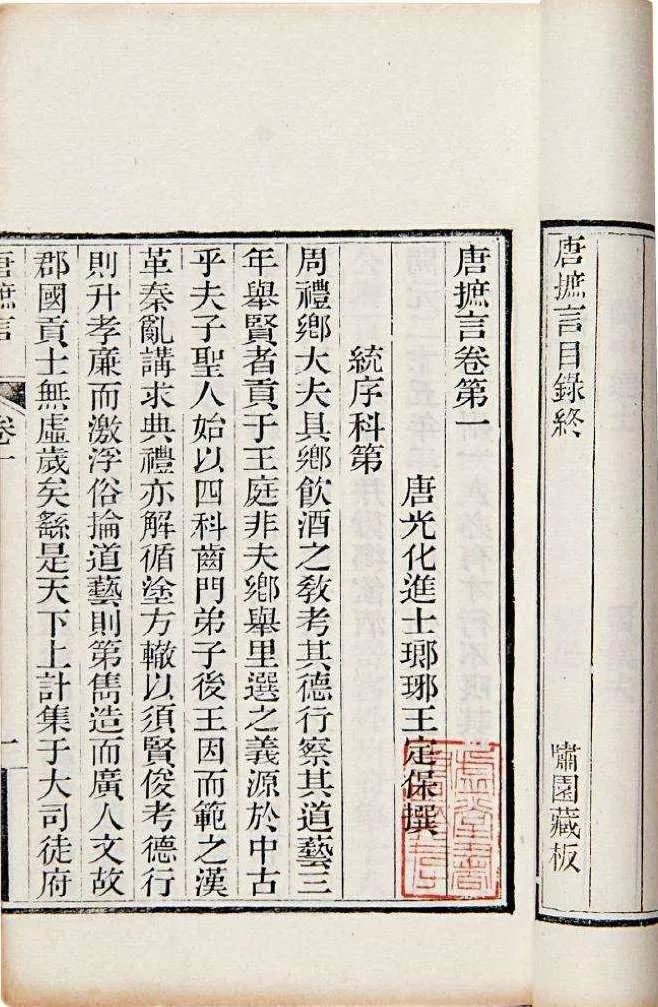 唐摭言目錄終
嘯園藏板
唐摭言卷第一
唐光化進士瑯琊王定保撰
統序科第
周禮鄉大夫具鄉飲酒之教考其德行察其道藝三
年舉賢者貢于王庭非夫鄉舉里選之義源於中古
乎夫子聖人始以四科齒門弟子後王因而範之漢
革秦亂講求典禮亦解循塗方轍以須賢俊考德行
則升孝廉而激浮俗掄道藝則第雋造而廣人文故
郡國貢士無虛歲矣繇是天下上計集于大司徒府
唐摭言
卷一
一